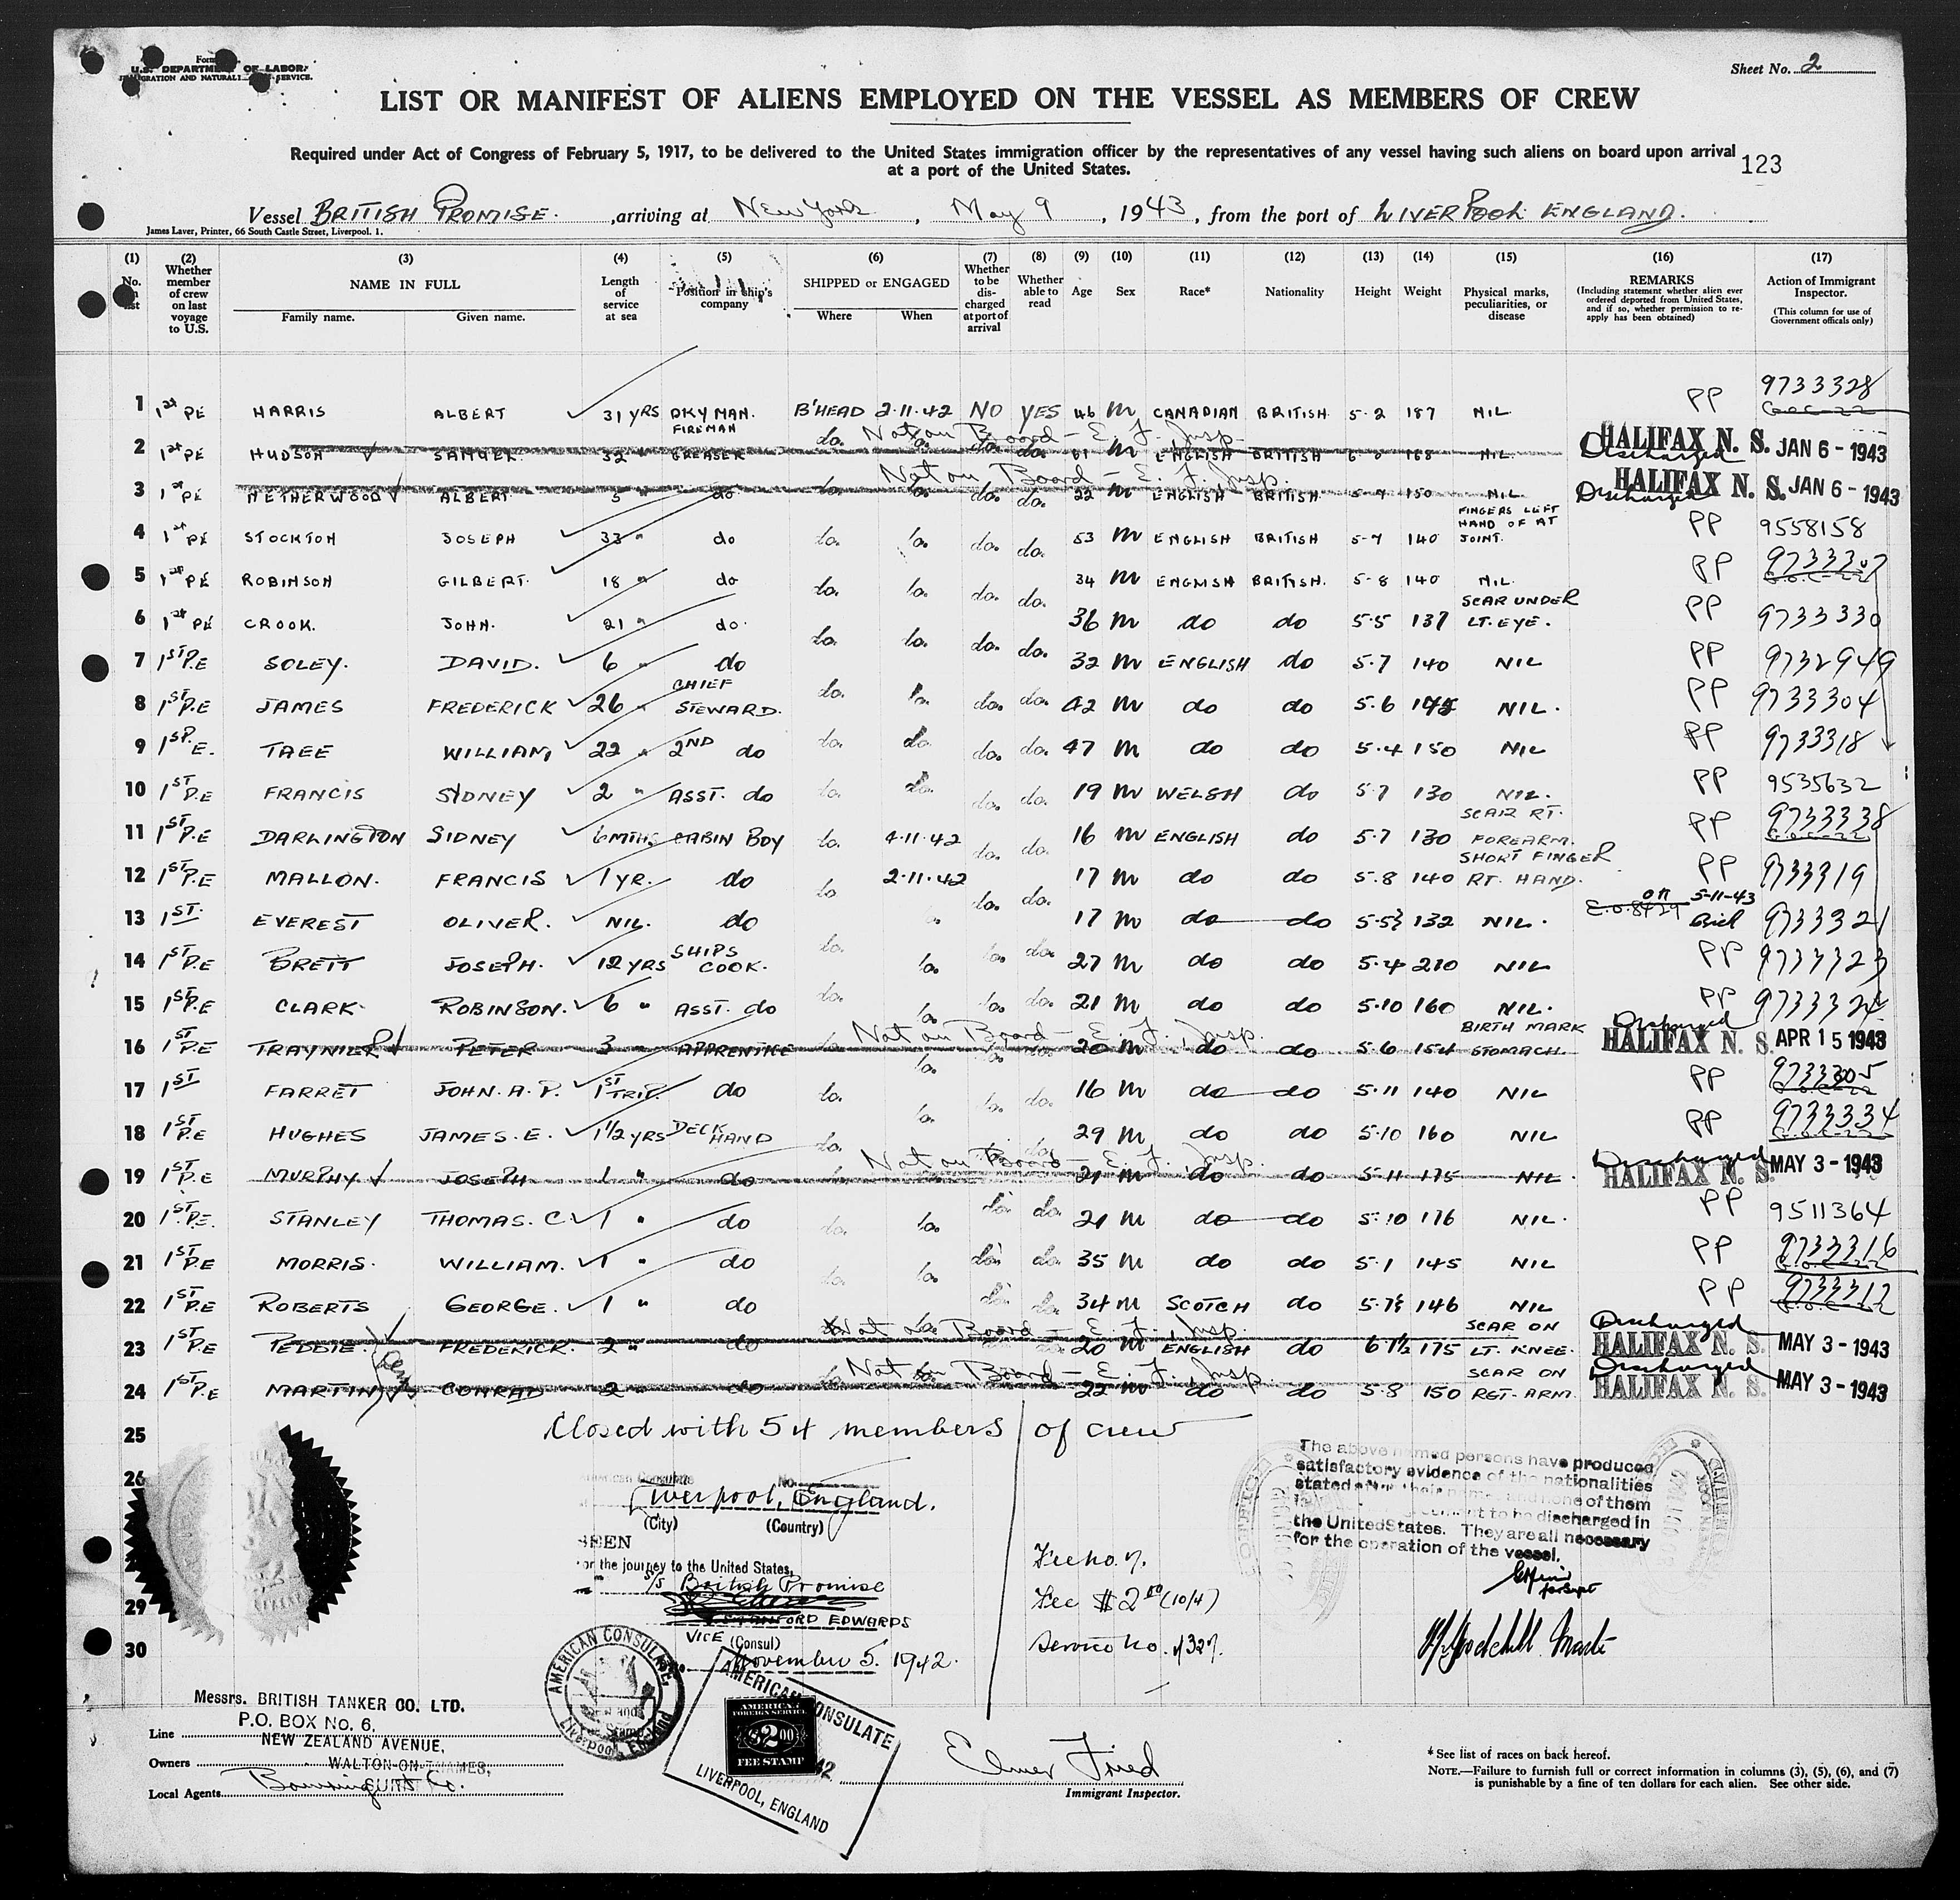 Form
U.S. DEPARTMENT OF LABOR
IMMIGRATION AND NATURALIZATION SERVICE.
Sheet No. 2
LIST OR MANIFEST OF ALIENS EMPLOYED ON THE VESSEL AS MEMBERS OF CREW
Required under Act of Congress of February 5, 1917, to be delivered to the United States immigration officer by the representatives of any vessel having such aliens on board upon arrival
at a port of the United States.
123
Vessel BRITISH PROMISE. , arriving at New York , May 9 , 1943, from the port of LIVERPOOL ENGLAND.
James Laver, Printer, 66 South Castle Street, Liverpool. 1.
(1) No. on list (2) Whether member of crew on last voyage to U.S. (3) NAME IN FULL Family name. Given name. (4) Length of service at sea (5) Position in ship's company (6) SHIPPED or ENGAGED Where When (7) Whether to be discharged at port of arrival (8) Whether able to read (9) Age (10) Sex (11) Race* (12) Nationality (13) Height (14) Weight (15) Physical marks, peculiarities, or disease (16) REMARKS (Including statement whether alien ever ordered deported from United States, and if so, whether permission to re-apply has been obtained) (17) Action of Immigrant Inspector. (This column for use of Government officials only)
1 1st PE HARRIS ALBERT 31 YRS DKYMAN. FIREMAN B'HEAD 2.11.42 NO YES 46 M CANADIAN BRITISH 5-2 187 NIL PP 9733328
2 1st PE HUDSON SAMUEL 32 " GREASER do. do. do. do. 61 M ENGLISH BRITISH 6-0 168 NIL. Discharged HALIFAX N. S. JAN 6 - 1943
Not on Board - E. F. Insp.
3 1st PE NETHERWOOD ALBERT 5 " do do. do. do. do. 22 M ENGLISH BRITISH 5-7 150 NIL Discharged HALIFAX N. S. JAN 6 - 1943
Not on Board - E. F. Insp.
4 1st PE STOCKTON JOSEPH 33 " do do. do. do. do. 53 M ENGLISH BRITISH 5-7 140 FINGERS LEFT HAND OF AT JOINT. PP 9558158
5 1st PE ROBINSON GILBERT. 18 " do do. do. do. do. 34 M ENGLISH BRITISH. 5-8 140 NIL. PP 9733307
6 1st PE CROOK. JOHN. 21 " do. do. do. do. do. 36 M do do 5.5 137 SCAR UNDER LT. EYE. PP 9733330
7 1ST P.E SOLEY. DAVID. 6 " do do. do. do. do. 32 M ENGLISH do 5.7 140 NIL PP 9732949
8 1ST P.E JAMES FREDERICK 26 " CHIEF STEWARD. do. do. do. do. 42 M do do 5.6 142 NIL. PP 9733304
9 1ST P.E. TAEE WILLIAM, 22 " 2ND do do. do. do. do. 47 M do do 5.4 150 NIL PP 9733318
10 1ST P.E FRANCIS SYDNEY 2 " ASST. do do. do. do. do. 19 M WELSH do 5.7 130 NIL. PP 9535632
11 1ST P.E DARLINGTON SIDNEY 6 MTHS CABIN BOY do. 4.11.42 do. do. 16 M ENGLISH do 5.7 130 SCAR RT. FOREARM. PP 9733338
12 1ST P.E MALLON. FRANCIS 1 YR. do do 2.11.42 do. do. 17 M do do 5.8 140 SHORT FINGER RT. HAND. PP 9733319
13 1ST. EVEREST OLIVER. NIL. do 17 M do do 5.5½ 132 NIL. 5-11-43 9733321
14 1ST P.E BRETT JOSEPH. 12 YRS SHIPS COOK. do. do. do. do. 27 M do do 5.4 210 NIL PP 9733323
15 1ST P.E CLARK ROBINSON. 6 " ASST. do do. do. do. do. 21 M do do 5.10 160 NIL. PP 9733324
16 1ST P.E TRAYNIER PETER 3 " APPRENTICE do. do. do. do. 20 M do do 5.6 154 BIRTH MARK STOMACH Discharged HALIFAX N. S. APR 15 1943
Not on Board - E. F. Insp.
17 1ST FARRET JOHN. A. P. 1ST TRIP. do do. do. do. do. 16 M do do 5.11 140 NIL PP 9733305
18 1ST P.E HUGHES JAMES. E. 1½ YRS DECK HAND do. do. do. do. 29 M do do 5.10 160 NIL PP 9733334
19 1ST P.E MURPHY JOSEPH 1 " do 21 M do do 5.11 175 NIL. Discharged HALIFAX N. S. MAY 3 - 1943
Not on Board - E. F. Insp.
20 1ST P.E. STANLEY THOMAS. C. 1 " do do. do. do. do. 21 M do do 5.10 176 NIL. PP 9511364
21 1ST P.E MORRIS. WILLIAM. 1 " do do. do. do. do. 35 M do do 5.1 145 NIL PP 9733316
22 1ST P.E ROBERTS GEORGE. 1 " do do. do. 34 M SCOTCH do 5.7½ 146 NIL PP 9733312
23 1ST P.E PEDDIE. FREDERICK. 2 " do 20 M ENGLISH do 6 1½ 175 SCAR ON LT. KNEE. Discharged HALIFAX N. S. MAY 3 - 1943
Not on Board - E. F. Insp.
24 1ST P.E MARTIN CONRAD 2 " do 22 M do do 5.8 150 SCAR ON RGT. ARM. Discharged HALIFAX N. S. MAY 3 - 1943
Not on Board - E. F. Insp.
25 Closed with 54 members of crew
26
American Consulate No.
Liverpool, England.
(City) (Country)
SEEN
for the journey to the United States,
S/S British Promise
STANFORD EDWARDS
VICE (Consul)
November 5, 1942.
28
29
30
Fee no. 7.
Fee $2.00 (10/4)
Service no. 4327.
The above named persons have produced
satisfactory evidence of the nationalities
stated after their names and none of them
to be discharged in
the United States. They are all necessary
for the operation of the vessel.
for Supt
AMERICAN CONSULATE
Liverpool, England
AMERICAN CONSULATE
AMERICAN FOREIGN SERVICE
$2.00
FEE STAMP
LIVERPOOL, ENGLAND
Messrs. BRITISH TANKER CO. LTD.
P.O. BOX No. 6,
Line NEW ZEALAND AVENUE,
Owners WALTON-ON-THAMES,
Local Agents
Elmer Fried
Immigrant Inspector.
* See list of races on back hereof.
NOTE.—Failure to furnish full or correct information in columns (3), (5), (6), and (7)
is punishable by a fine of ten dollars for each alien. See other side.